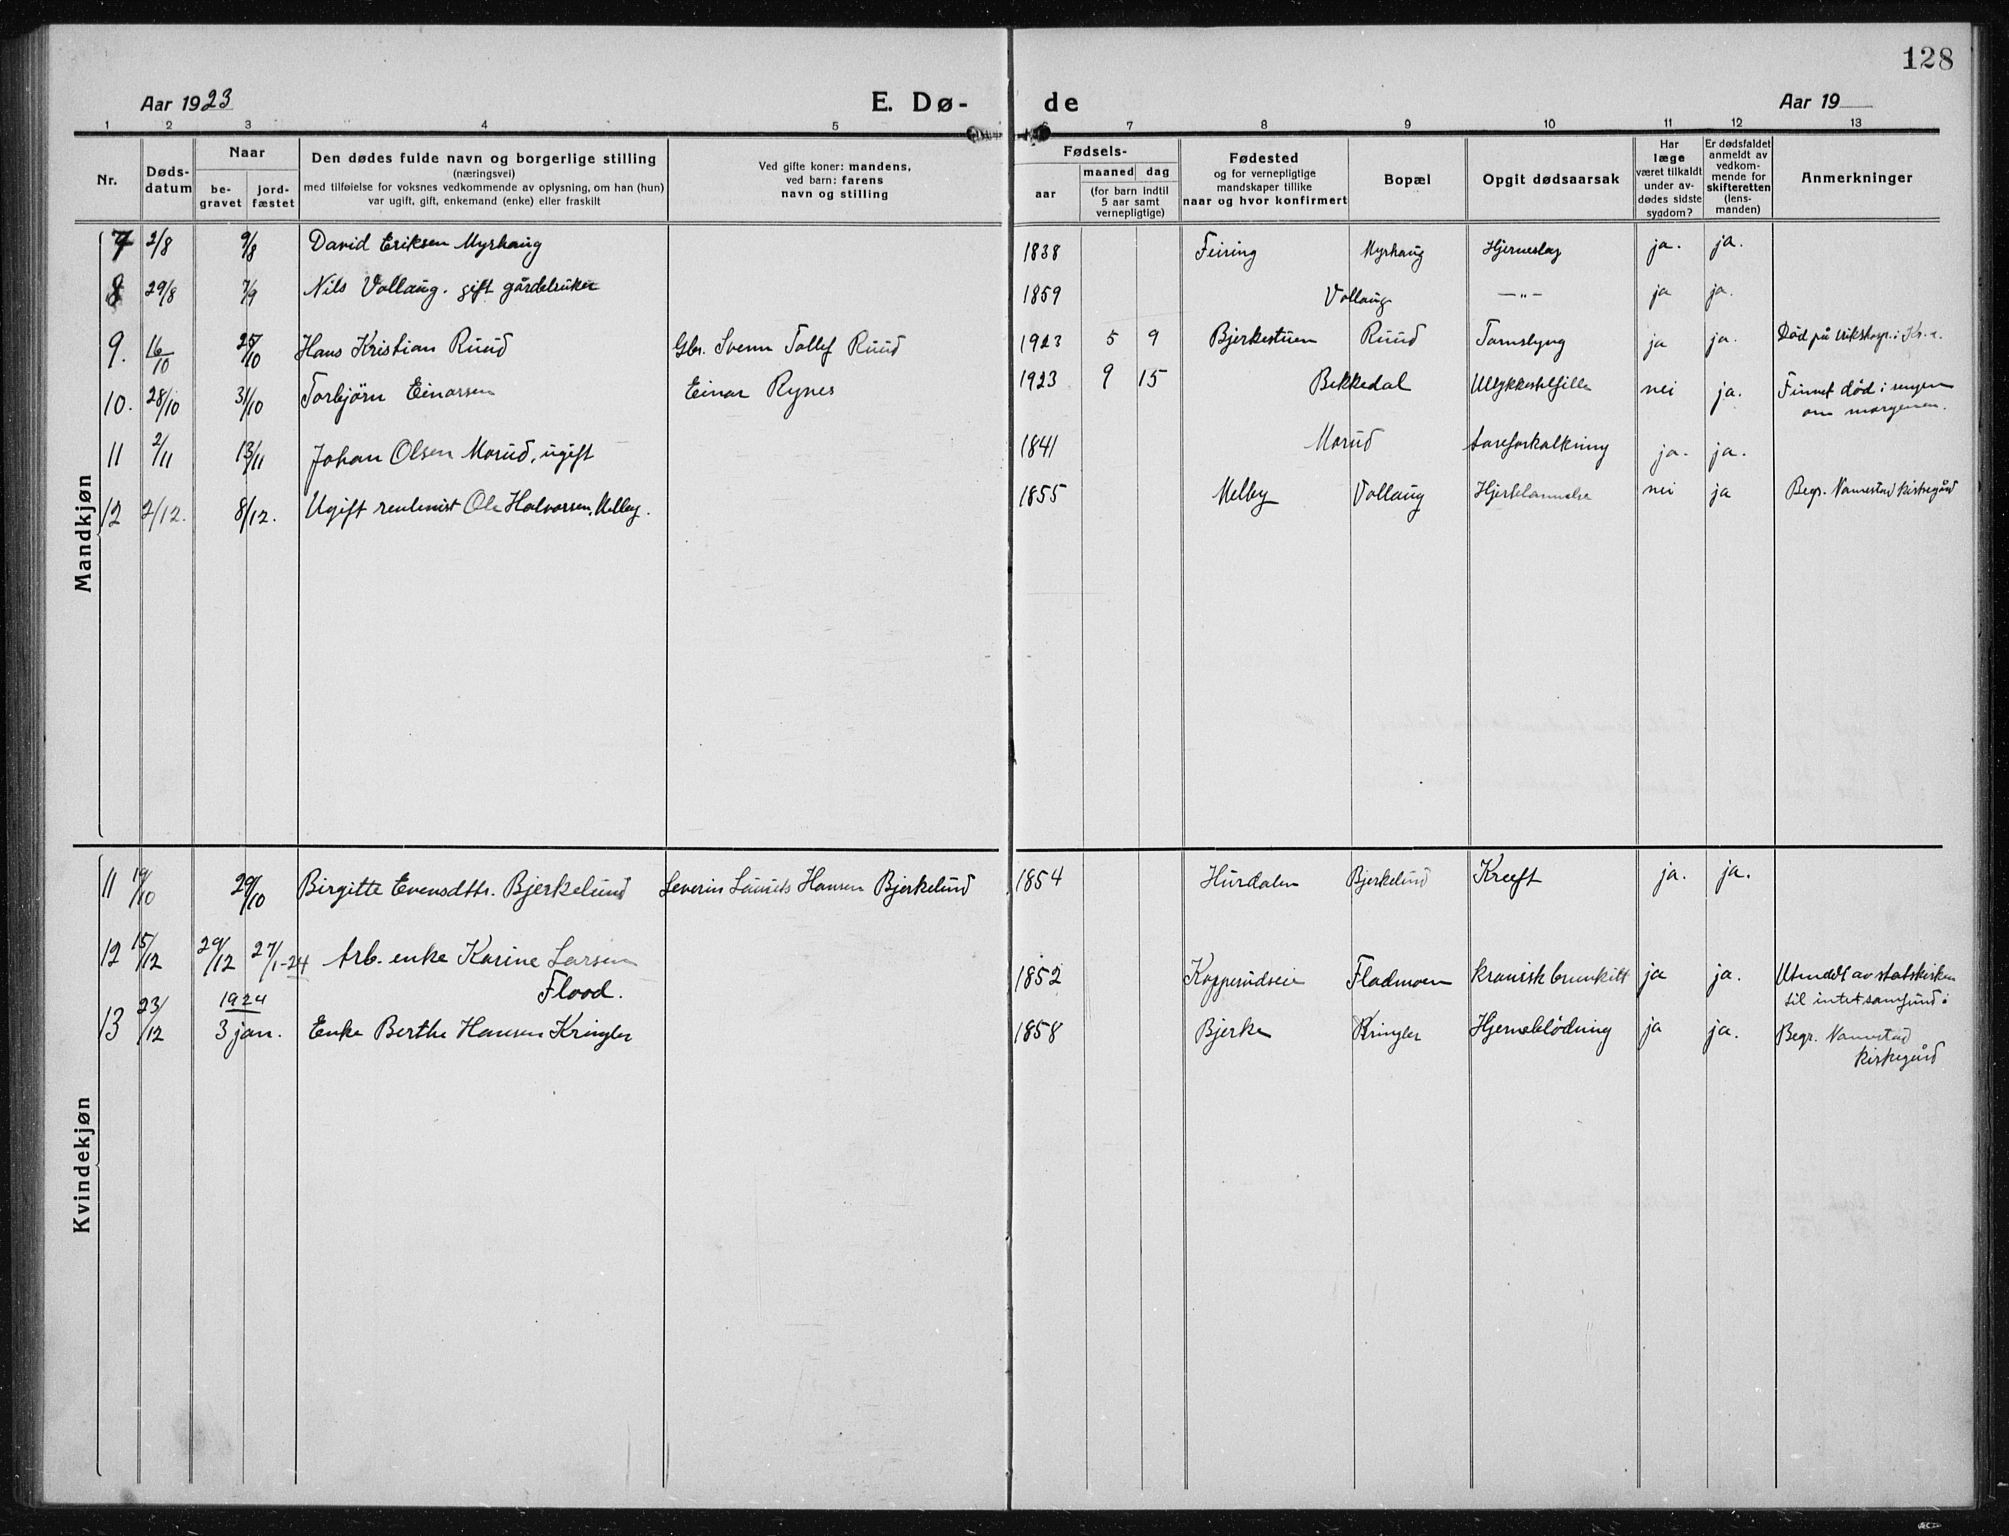 128
Aar 1923 E. Dø- de Aar 19
1 2 3 4 5 6 7 8 9 10 11 12 13
Nr.
Døds-
datum
Naar
be-
gravet
jord-
fæstet
Den dødes fulde navn og borgerlige stilling
(næringsvei)
med tilføielse for voksnes vedkommende av oplysning, om han (hun)
var ugift, gift, enkemand (enke) eller fraskilt
Ved gifte koner: mandens,
ved barn: farens
navn og stilling
Fødsels-
aar
maaned dag
(for barn indtil
5 aar samt
vernepligtige)
Fødested
og for vernepligtige
mandskaper tillike
naar og hvor konfirmert
Bopæl
Opgit dødsaarsak
Har
læge
været tilkaldt
under av-
dødes sidste
sygdom?
Er dødsfaldet
anmeldt av
vedkom-
mende for
skifteretten
(lens-
manden)
Anmerkninger
Mandkjøn
7 2/8 9/8 David Eriksen Myrhaug 1838 Feiring Myrhaug Hjerneslag ja. ja.
8 29/8 7/9 Nils Vollaug. gift gårdbruker 1859 Vollaug —"— ja ja.
9. 16/10 25/10 Hans Kristian Ruud Gbr. Svenn Tollef Ruud 1923 5 9 Bjerkestuen Ruud Tarmslyng ja ja. Død på rikshosp. i Kr.a.
10. 28/10 31/10 Torbjørn Einarsen Einar Rynes 1923 9 15 Bekkedal Ulykkestilfille nei ja. Funnet død i sengen
om morgenen.
11 2/11 13/11 Johan Olsen Morud, ugift 1841 Morud Aareforkalkning ja. ja.
12 2/12. 8/12. Ugift rentenist Ole Halvorsen Melby. 1855 Melby Vollaug Hjertelammelse nei ja Begr. Nannestad kirkegård
Kvindekjøn
11 19/10 29/10 Birgitte Evensdtr. Bjerkelund Severin Laurits Hansen Bjerkelund 1854 Hurdalen Bjerkelund Kreeft ja. ja.
12 15/12 29/12 27/1-24 Arb. enke Karine Larsen
Flood. 1852 Kopperudseie Flodmoen kronisk bronkitt ja ja. Utmeldt av statskirken
til intet samfund i
13 23/12 1924
3 jan. Enke Berthe Hansen Kringler 1858 Bjerke Kringler Hjerneblödning ja ja. Begr. Nannestad
kirkegård